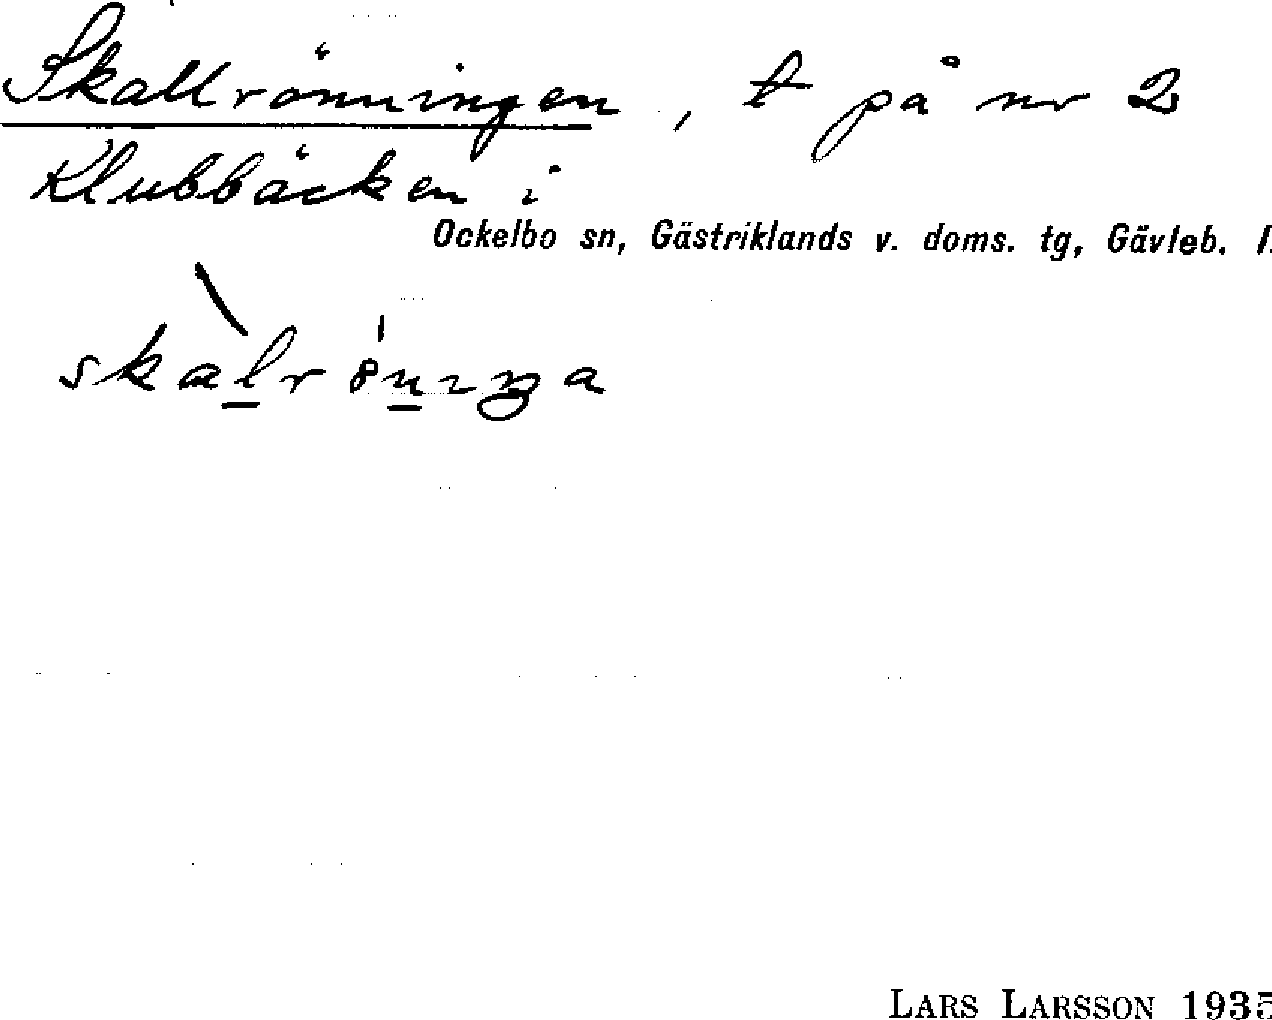 Skallrönningen, t på nr 2
Klubbäcken i
Ockelbo sn, Gästriklands v. doms. tg, Gävleb. l.
LARS LARSSON 1935